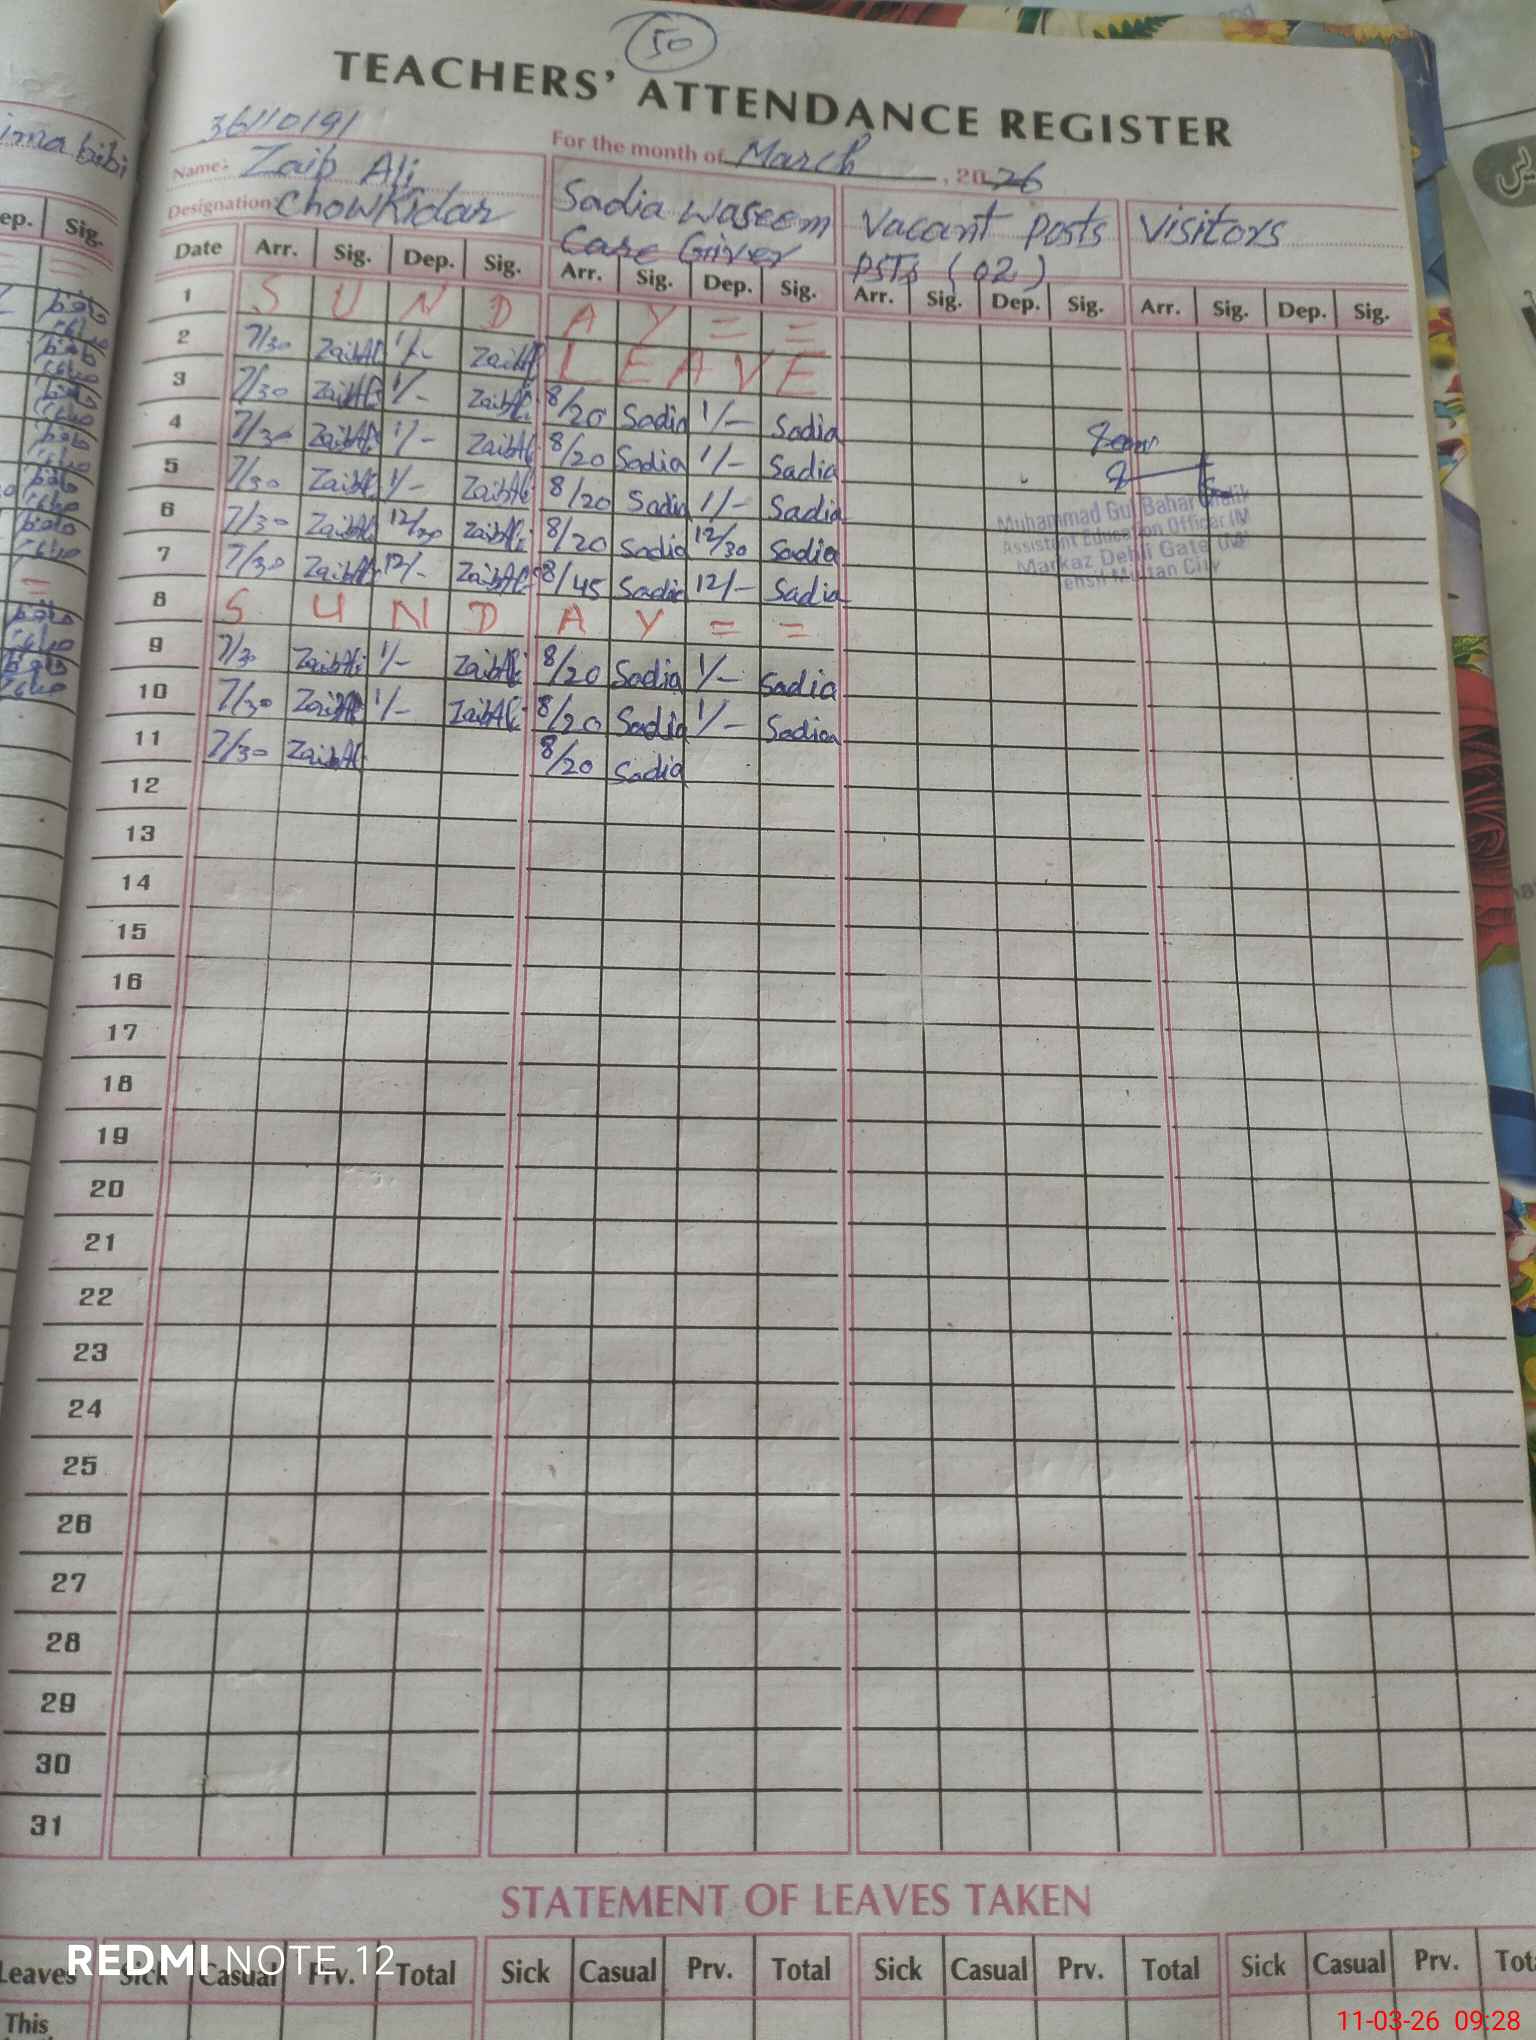 50
TEACHERS' ATTENDANCE REGISTER
36110191
For the month of March, 2026
Name: Zaib Ali
Designation: Chowkidar
Sadia Waseem
Care Giver
Vacant Posts
PSTs (02)
Visitors
Date Arr. Sig. Dep. Sig. Arr. Sig. Dep. Sig. Arr. Sig. Dep. Sig. Arr. Sig. Dep. Sig.
1 S U N D A Y = =
2 7/30 ZaibAli 1/- ZaibAli L E A V E
3 7/30 ZaibAli 1/- ZaibAli 8/20 Sadia 1/- Sadia
4 7/30 ZaibAli 1/- ZaibAli 8/20 Sadia 1/- Sadia
5 7/30 ZaibAli 1/- ZaibAli 8/20 Sadia 1/- Sadia
6 7/30 ZaibAli 12/30 ZaibAli 8/20 Sadia 12/30 Sadia
7 7/30 ZaibAli 12/- ZaibAli 8/45 Sadia 12/- Sadia
8 S U N D A Y = =
9 7/30 ZaibAli 1/- ZaibAli 8/20 Sadia 1/- Sadia
10 7/30 ZaibAli 1/- ZaibAli 8/20 Sadia 1/- Sadia
11 7/30 ZaibAli 8/20 Sadia
12
13
14
15
16
17
18
19
20
21
22
23
24
25
26
27
28
29
30
31
Muhammad Gul Bahar Malik
Assistant Education Officer (M
Markaz Dehli Gate
Multan City
STATEMENT OF LEAVES TAKEN
Leaves Sick Casual Prv. Total Sick Casual Prv. Total Sick Casual Prv. Total Sick Casual Prv.
This
REDMI NOTE 12
11-03-26 09:28
bibi
Sig.